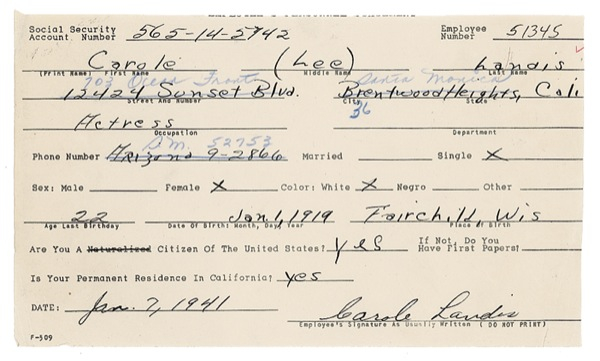 EMPLOYEE'S PERSONNEL STATEMENT
Social Security Account Number 565-14-5742 Employee Number 51345
Carole (Lee) Landis
(Print Name) First Name Middle Name Last Name
703 Ocean Front Santa Monica
12424 Sunset Blvd. Brentwood Heights, Cali
Street And Number City State
36
Actress
Occupation Department
S.M. 52753
Phone Number Arizona 9-2866 Married Single X
Sex: Male Female X Color: White X Negro Other
22 Jan. 1, 1919 Fairchild, Wis
Age Last Birthday Date Of Birth: Month, Day, Year Place of Birth
Are You A Naturalized Citizen Of The United States? Yes If Not, Do You Have First Papers?
Is Your Permanent Residence In California? yes
DATE: Jan. 7, 1941 Carole Landis
Employee's Signature As Usually Written ( DO NOT PRINT)
F-509